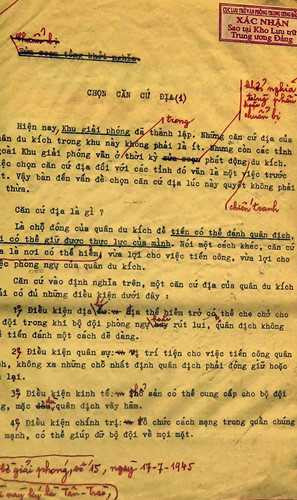 CỤC LƯU TRỮ VĂN PHÒNG TRUNG ƯƠNG ĐẢNG
XÁC NHẬN
Sao tại Kho Lưu trữ
Trung ương Đảng
CHỌN CĂN CỨ ĐỊA(1)
trong
Hiện nay, Khu giải phóng đã thành lập. Những căn cứ địa của
du kích trong khu này không phải là ít. Nhưng còn các tỉnh
Khu giải phóng vẫn ở thời kỳ phát động du kích.
chuẩn bị
chiến tranh
chọn căn cứ địa đối với các tỉnh đó vẫn là một việc trước
Vậy bàn đến vấn đề chọn căn cứ địa lúc này quyết không phải
thừa.
Căn cứ địa là gì ?
Là chỗ đóng của quân du kích để tiến có thể đánh quân địch,
có thể giữ được thực lực của mình. Nói một cách khác, căn cứ
là nơi có thể hiểm, vừa lợi cho việc tiến công, vừa lợi cho
phòng ngự của quân du kích.
Căn cứ vào định nghĩa trên, một căn cứ địa của quân du kích
có đủ những điều kiện dưới đây :
1) Điều kiện địa thế hiểm trở có thể che chở cho
đội trong khi bộ đội phòng ngự hoặc rút lui, quân địch không
tiến đánh một cách dễ dàng.
2) Điều kiện quân sự: vị trí tiện cho việc tiến công quân
không xa những chỗ nhất định quân địch phải đóng giữ hoặc
lại.
3) Điều kiện kinh tế: thổ sản có thể cung cấp cho bộ đội
mặc quân địch vây hãm.
4) Điều kiện chính trị: tổ chức cách mạng trong quần chúng
mạnh, có thể giúp đỡ bộ đội về mọi mặt.
giải phóng, số 15, ngày 17-7-1945
Tân Trào